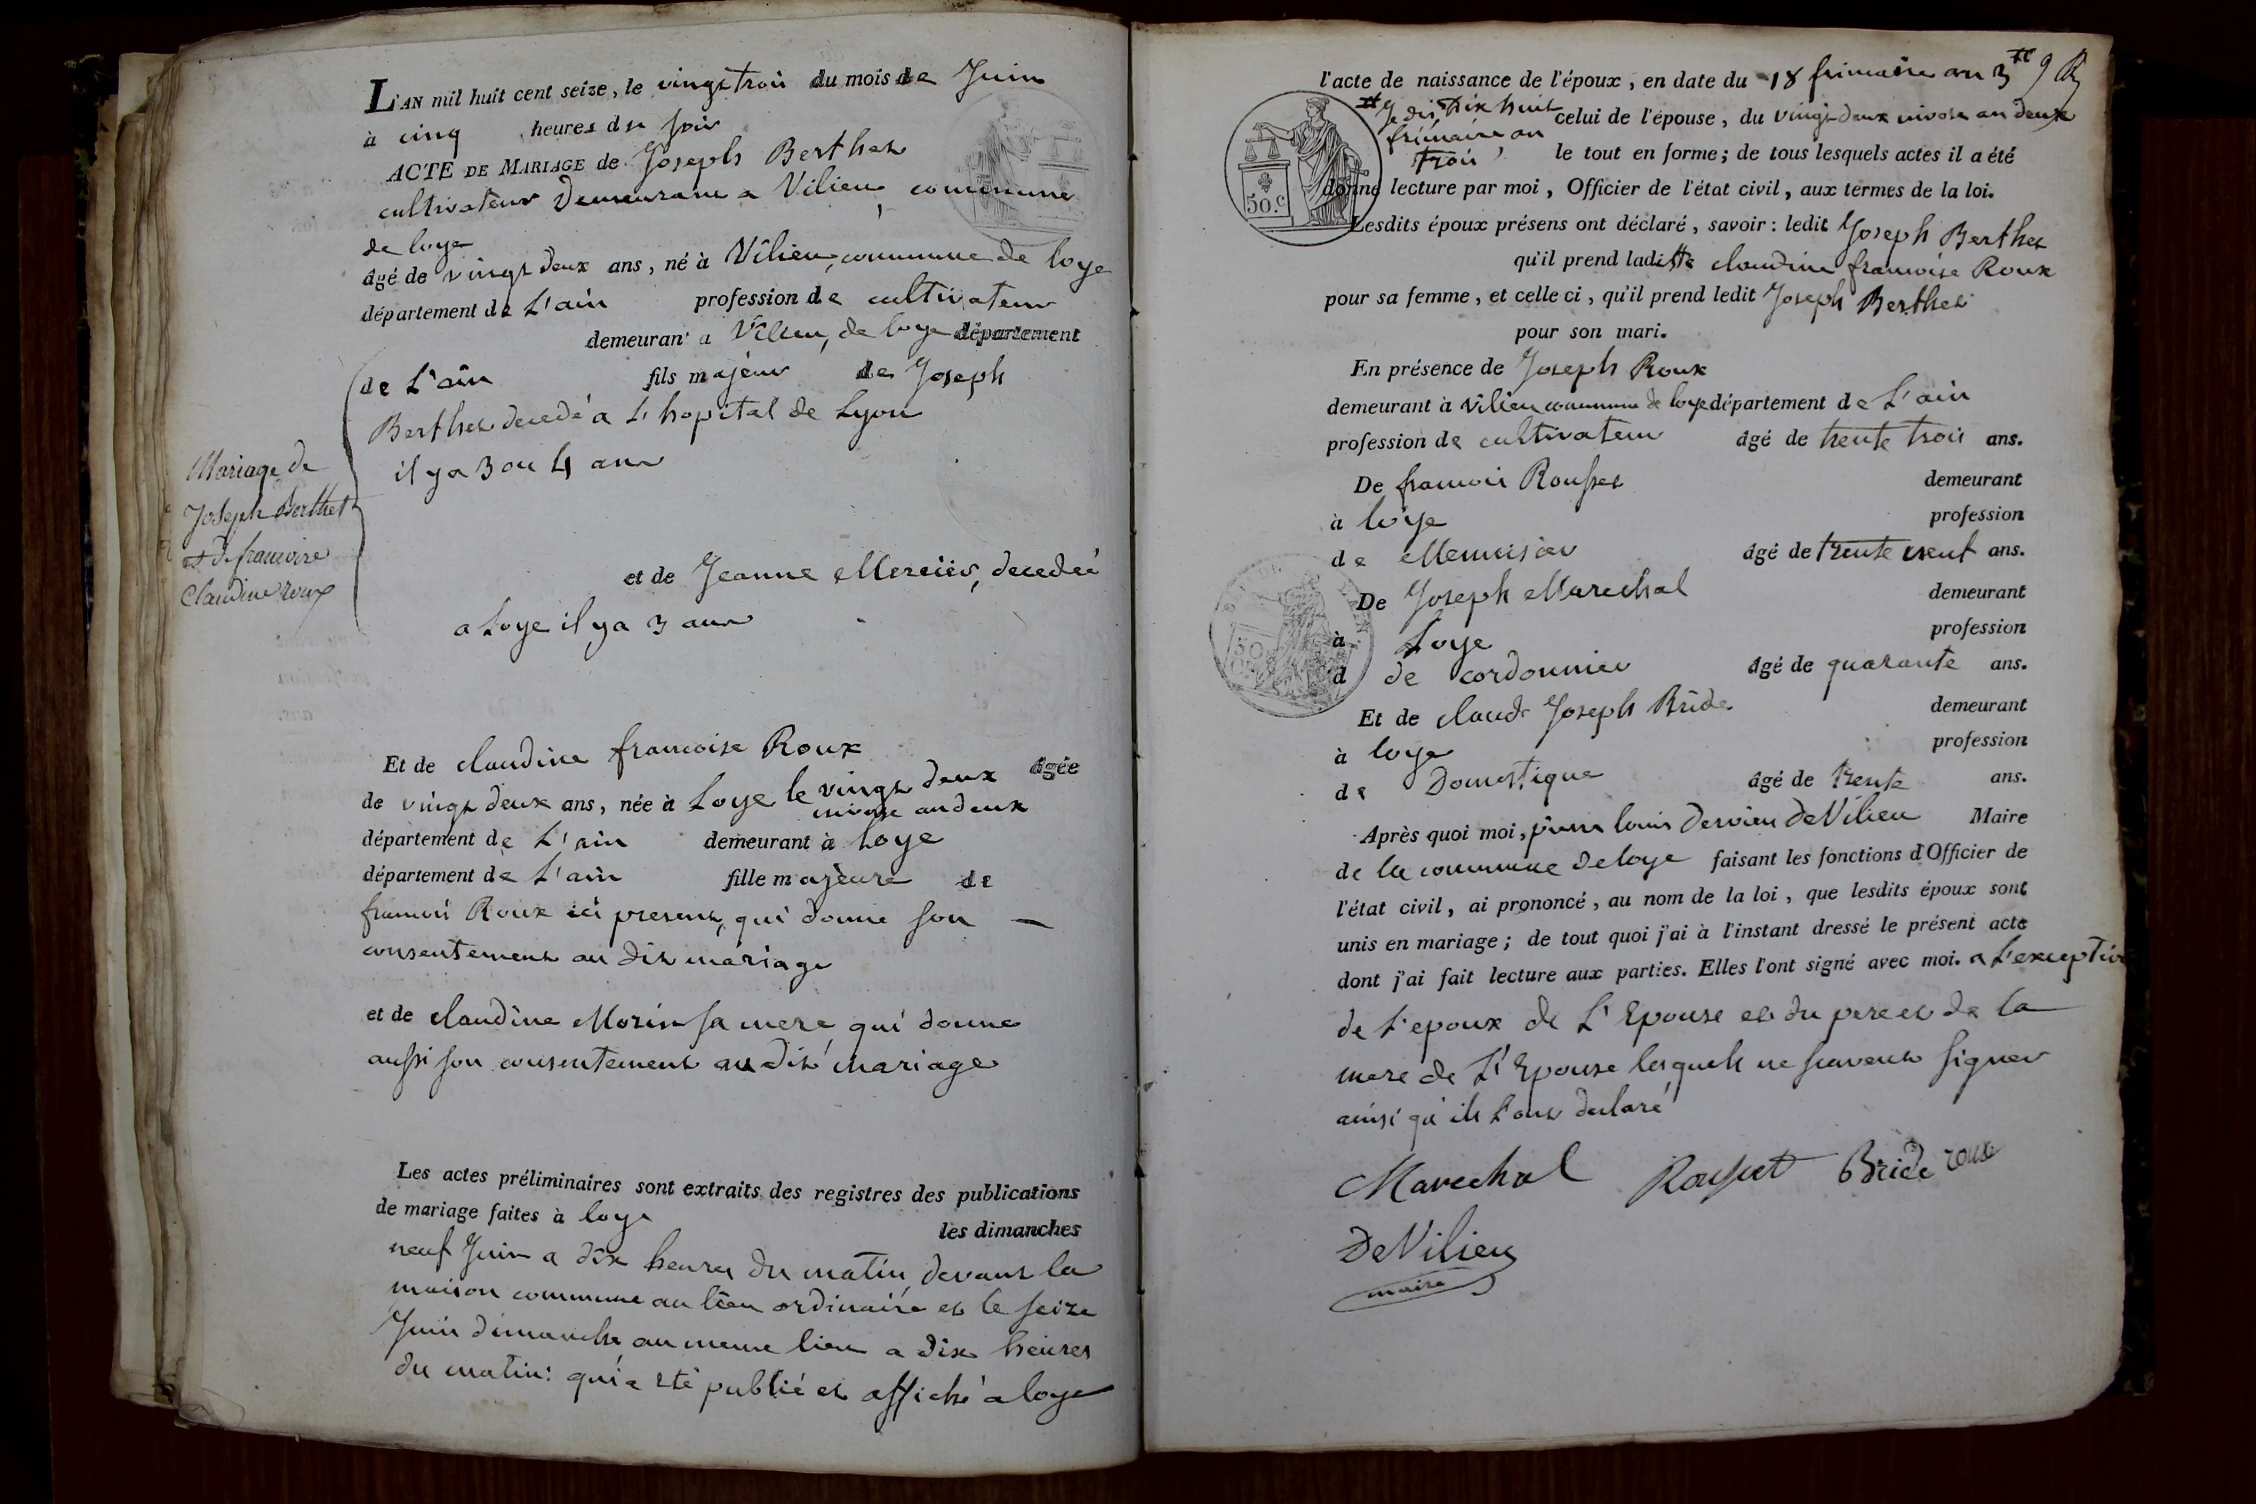 L'AN mil huit cent seize, le vingt trois du mois de Juin
à cinq heures du soir
ACTE DE MARIAGE de Joseph Berthet
cultivateur demeurant a Vilieu, commune
de loye
âgé de vingt deux ans, né à Vilieu, commune de loye
département de L'ain profession de cultivateur
demeurant a Vilieu, de loye département
de L'ain fils majeur de Joseph
Berthet decedé a L'hopital de Lyon
il y a 3 ou 4 ans
Mariage de
Joseph Berthet
et de francoise
Claudine roux
et de Jeanne Mercier, decedée
a Loye il y a 3 ans
Et de claudine francoise Roux âgée
de vingt deux ans, née à Loye le vingt deux
nivose an deux
département de L'ain demeurant à Loye
département de L'ain fille majeure de
francois Roux ici present, qui donne son
consentement au dit mariage
et de claudine Morin sa mere, qui donne
aussi son consentement au dit mariage
Les actes préliminaires sont extraits des registres des publications
de mariage faites à loye les dimanches
neuf Juin a dix heures du matin, devant la
maison commune au lieu ordinaire et le seize
Juin dimanche au meme lieu a dix heures
du matin: qui a eté publié et affiché a loye
l'acte de naissance de l'époux, en date du 18 frimaire an 3
Je dis Dix huit
frimaire an
trois
celui de l'épouse, du vingt deux nivose an deux
le tout en forme; de tous lesquels actes il a été
50.c
donné lecture par moi, Officier de l'état civil, aux termes de la loi.
Lesdits époux présens ont déclaré, savoir: ledit Joseph Berthet
qu'il prend laditte claudine francoise Roux
pour sa femme, et celle ci, qu'il prend ledit Joseph Berthet
pour son mari.
En présence de Joseph Roux
demeurant à Vilieu commune de loye département de L'ain
profession de cultivateur âgé de trente trois ans.
De francois Rousset demeurant
à loye profession
de Menuisier âgé de trente neuf ans.
De Joseph Marechal demeurant
à Loye profession
d de cordonnier âgé de quarante ans.
Et de claude Joseph Bride demeurant
à loye profession
de Domestique âgé de trente ans.
Après quoi moi, pierre louis dervieu deVilieu Maire
de la commune de loye faisant les fonctions d'Officier de
l'état civil, ai prononcé, au nom de la loi, que lesdits époux sont
unis en mariage; de tout quoi j'ai à l'instant dressé le présent acte
dont j'ai fait lecture aux parties. Elles l'ont signé avec moi. a L'exception
de L'epoux de L'Epouse et du pere et de la
mere de L'Epouse lesquels ne scavent signer
ainsi qu'ils L'ont declaré
Marechal Rousset Bride roux
DeVilieu
maire